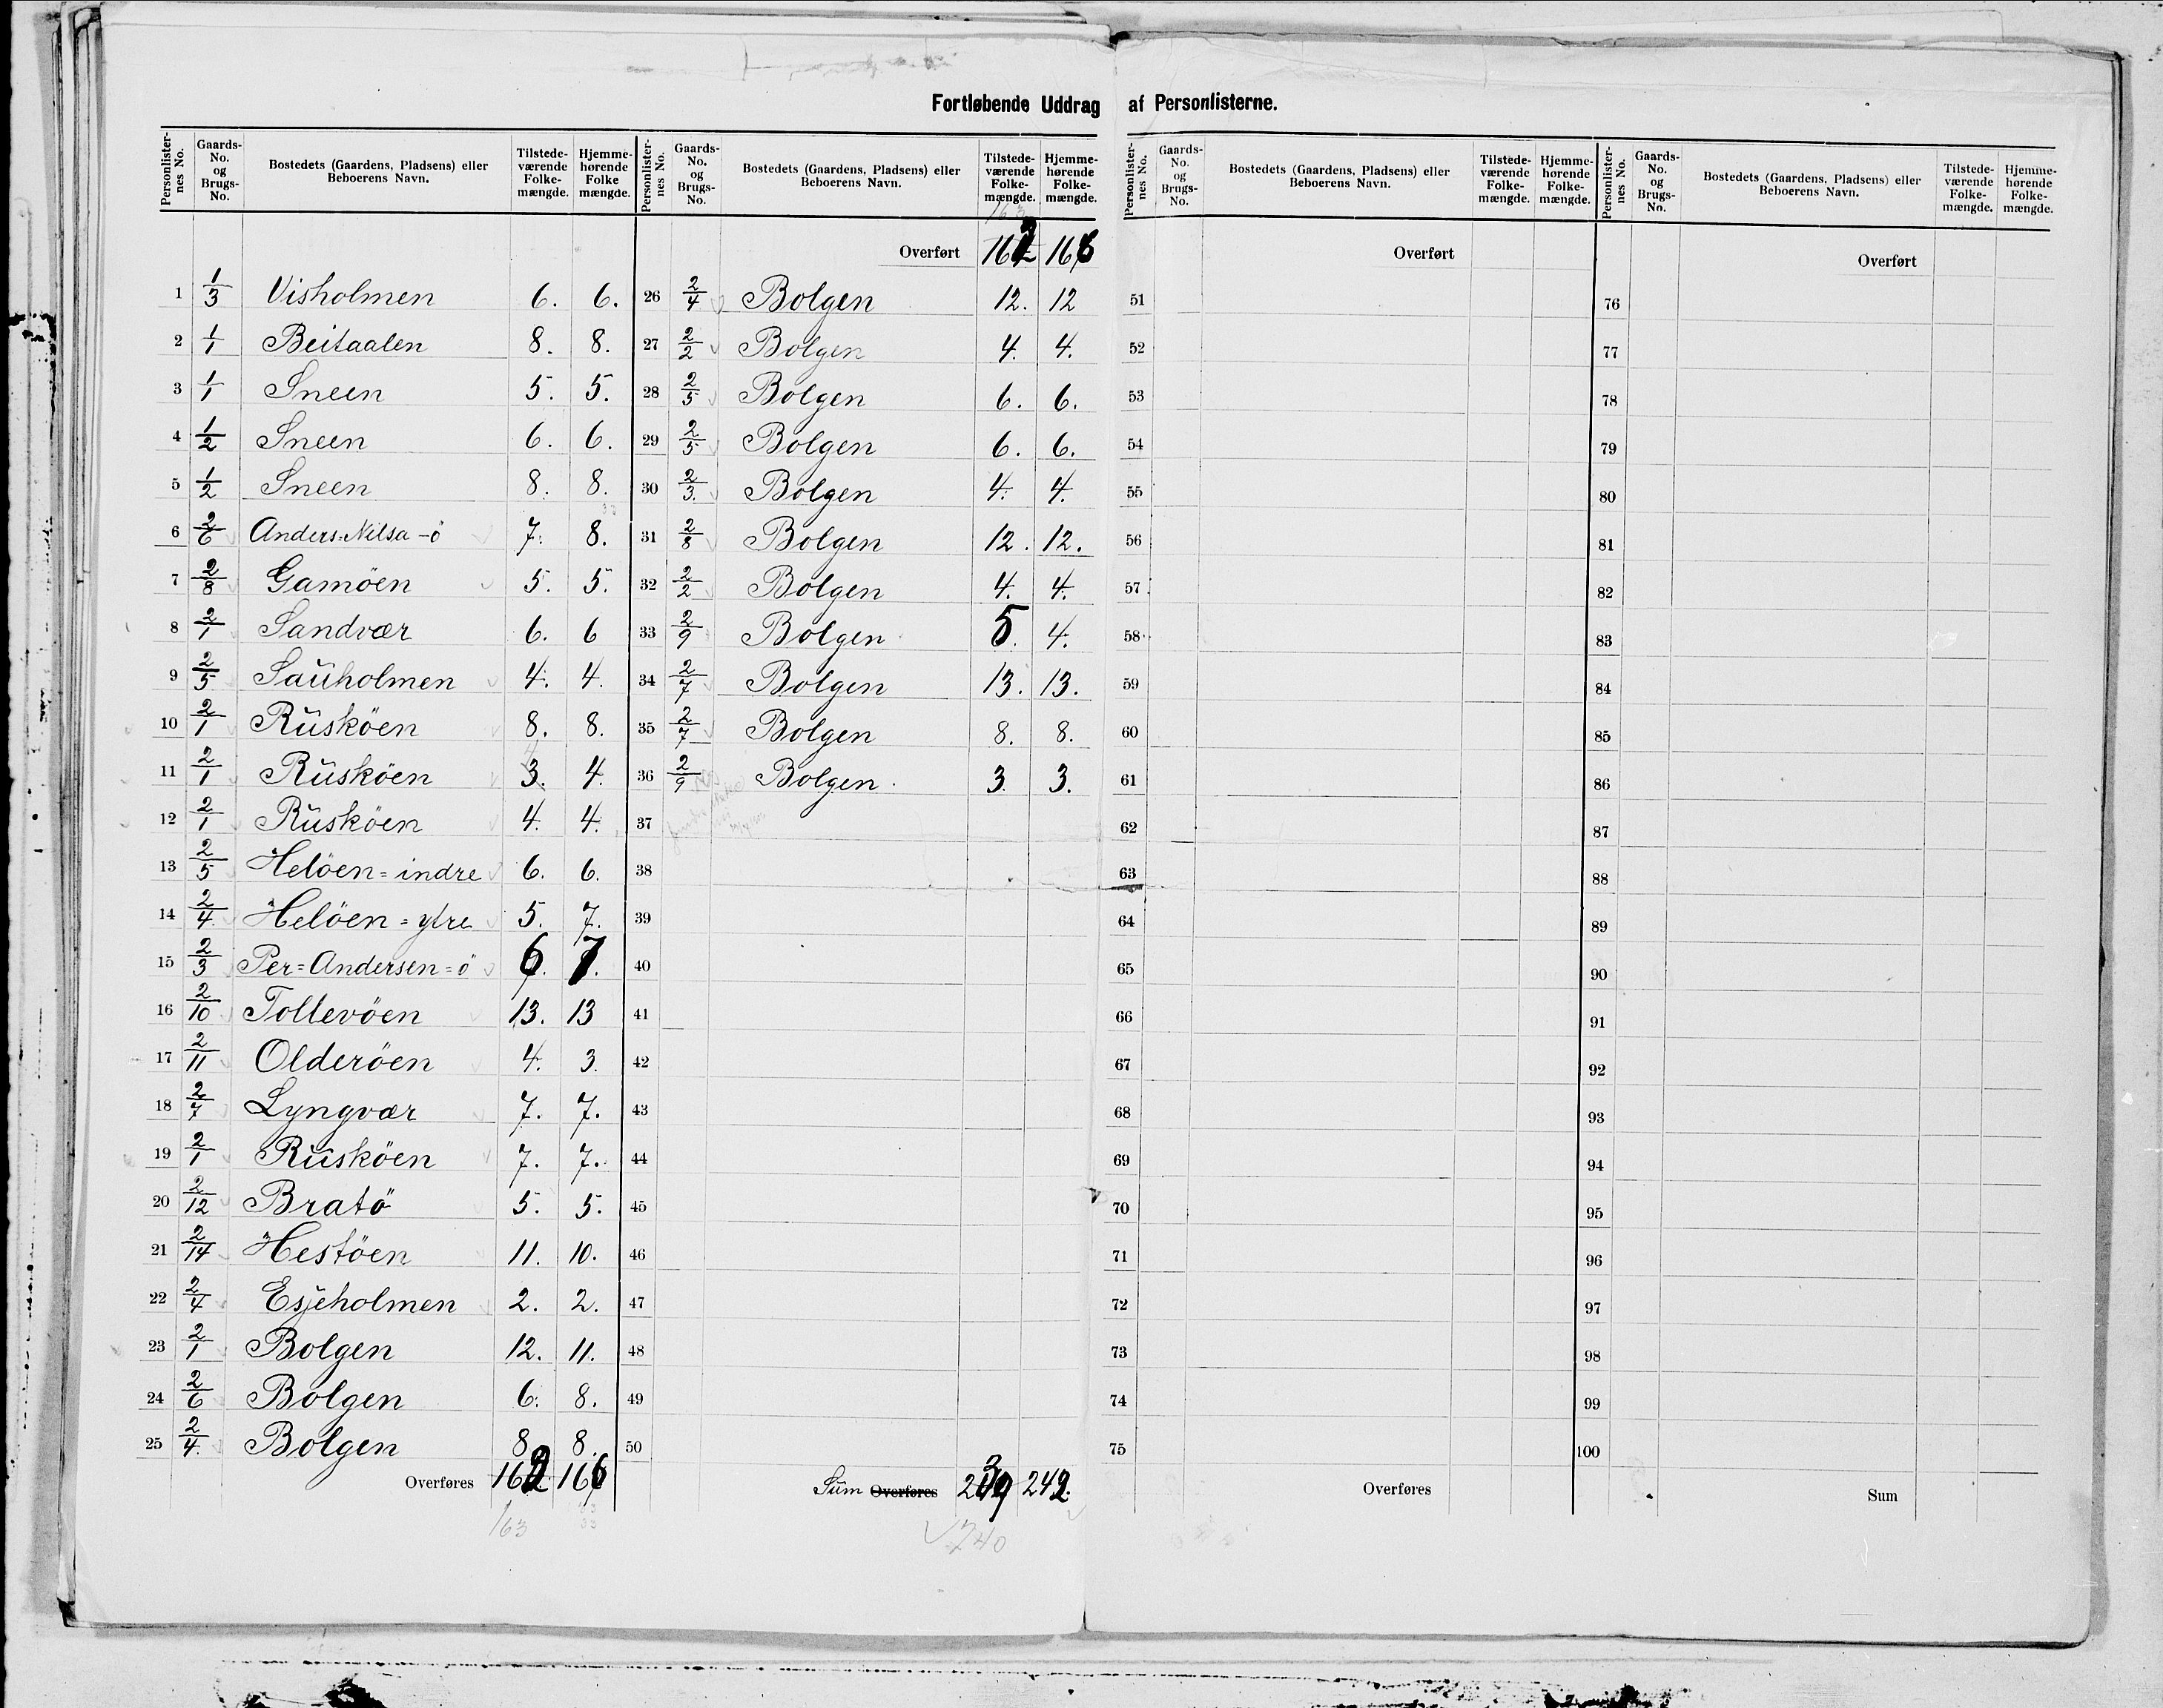 Fortløbende Uddrag af Personlisterne.
Personlister-nes No. | Gaards-No. og Brugs-No. | Bostedets (Gaardens, Pladsens) eller Beboerens Navn. | Tilstede-værende Folke-mængde. | Hjemme-hørende Folke mængde.
1 1/3 Visholmen 6. 6.
2 1/1 Beitaalen 8. 8.
3 1/1 Sneen 5. 5.
4 1/2 Sneen 6. 6.
5 1/2 Sneen 8. 8.
6 2/6 Anders-Nilsa-ö 7. 8.
7 2/8 Gamöen 5. 5.
8 2/1 Sandvær 6. 6
9 2/5 Sauholmen 4. 4.
10 2/1 Rusköen 8. 8.
11 2/1 Rusköen 3. 4.
12 2/1 Rusköen 4. 4.
13 2/5 Helöen=indre 6. 6.
14 2/4 Helöen=ytre 5. 7.
15 2/3 Per=Andersen=ö 6. 7.
16 2/10 Tollevöen 13. 13
17 2/11 Olderöen 4. 3.
18 2/7 Lyngvær 7. 7.
19 2/1 Rusköen 7. 7.
20 2/12 Bratö 5. 5.
21 2/14 Hestöen 11. 10.
22 2/4 Esjeholmen 2. 2.
23 2/1 Bolgen 12. 11.
24 2/6 Bolgen 6. 8.
25 2/4 Bolgen 8 8.
Overføres 162 166
163
Personlister-nes No. | Gaards-No. og Brugs-No. | Bostedets (Gaardens, Pladsens) eller Beboerens Navn. | Tilstede-værende Folke-mængde. | Hjemme-hørende Folke-mængde.
163
Overført 162 166
26 2/4 Bolgen 12. 12
27 2/2 Bolgen 4. 4.
28 2/5 Bolgen 6. 6.
29 2/5 Bolgen 6. 6.
30 2/3 Bolgen 4. 4.
31 2/8 Bolgen 12. 12.
32 2/2 Bolgen 4. 4.
33 2/9 Bolgen 5. 4.
34 2/7 Bolgen 13. 13.
35 2/7 Bolgen 8. 8.
36 2/9 Bolgen 3. 3.
37
38
39
40
41
42
43
44
45
46
47
48
49
50
Sum Overføres 239 242.
240
Personlister-nes No. | Gaards-No. og Brugs-No. | Bostedets (Gaardens, Pladsens) eller Beboerens Navn. | Tilstede-værende Folke-mængde. | Hjemme-hørende Folke-mængde.
Overført
51
52
53
54
55
56
57
58
59
60
61
62
63
64
65
66
67
68
69
70
71
72
73
74
75
Overføres
Personlister-nes No. | Gaards-No. og Brugs-No. | Bostedets (Gaardens, Pladsens) eller Beboerens Navn. | Tilstede-værende Folke-mængde. | Hjemme-hørende Folke-mængde.
Overført
76
77
78
79
80
81
82
83
84
85
86
87
88
89
90
91
92
93
94
95
96
97
98
99
100
Sum